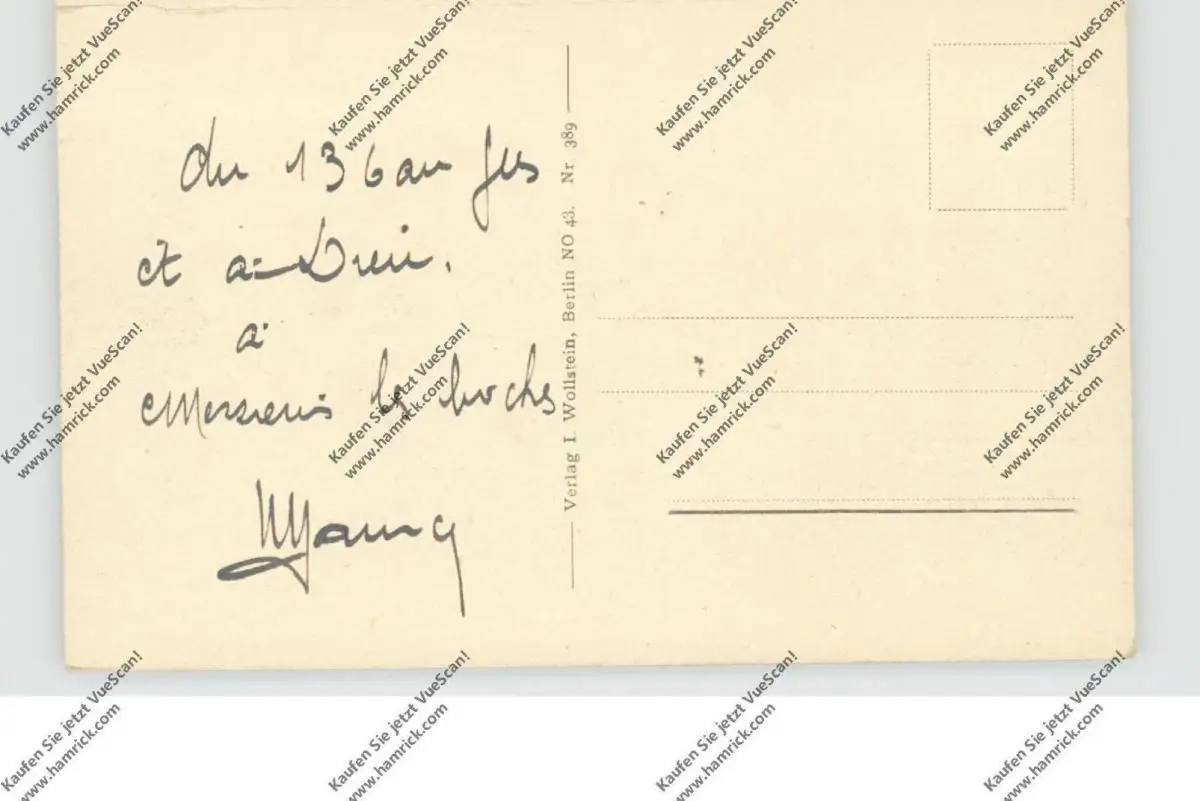 du 136 au jus
et a-Dieu.
a
Messieurs les boches
Verlag I. Wollstein, Berlin NO 43. Nr 389
Kaufen Sie jetzt VueScan!
www.hamrick.com
Kaufen Sie jetzt VueScan!
www.hamrick.com
Kaufen Sie jetzt VueScan!
www.hamrick.com
Kaufen Sie jetzt VueScan!
www.hamrick.com
Kaufen Sie jetzt VueScan!
www.hamrick.com
Kaufen Sie jetzt VueScan!
www.hamrick.com
Kaufen Sie jetzt VueScan!
www.hamrick.com
Kaufen Sie jetzt VueScan!
www.hamrick.com
Kaufen Sie jetzt VueScan!
www.hamrick.com
Kaufen Sie jetzt VueScan!
www.hamrick.com
Kaufen Sie jetzt VueScan!
www.hamrick.com
Kaufen Sie jetzt VueScan!
www.hamrick.com